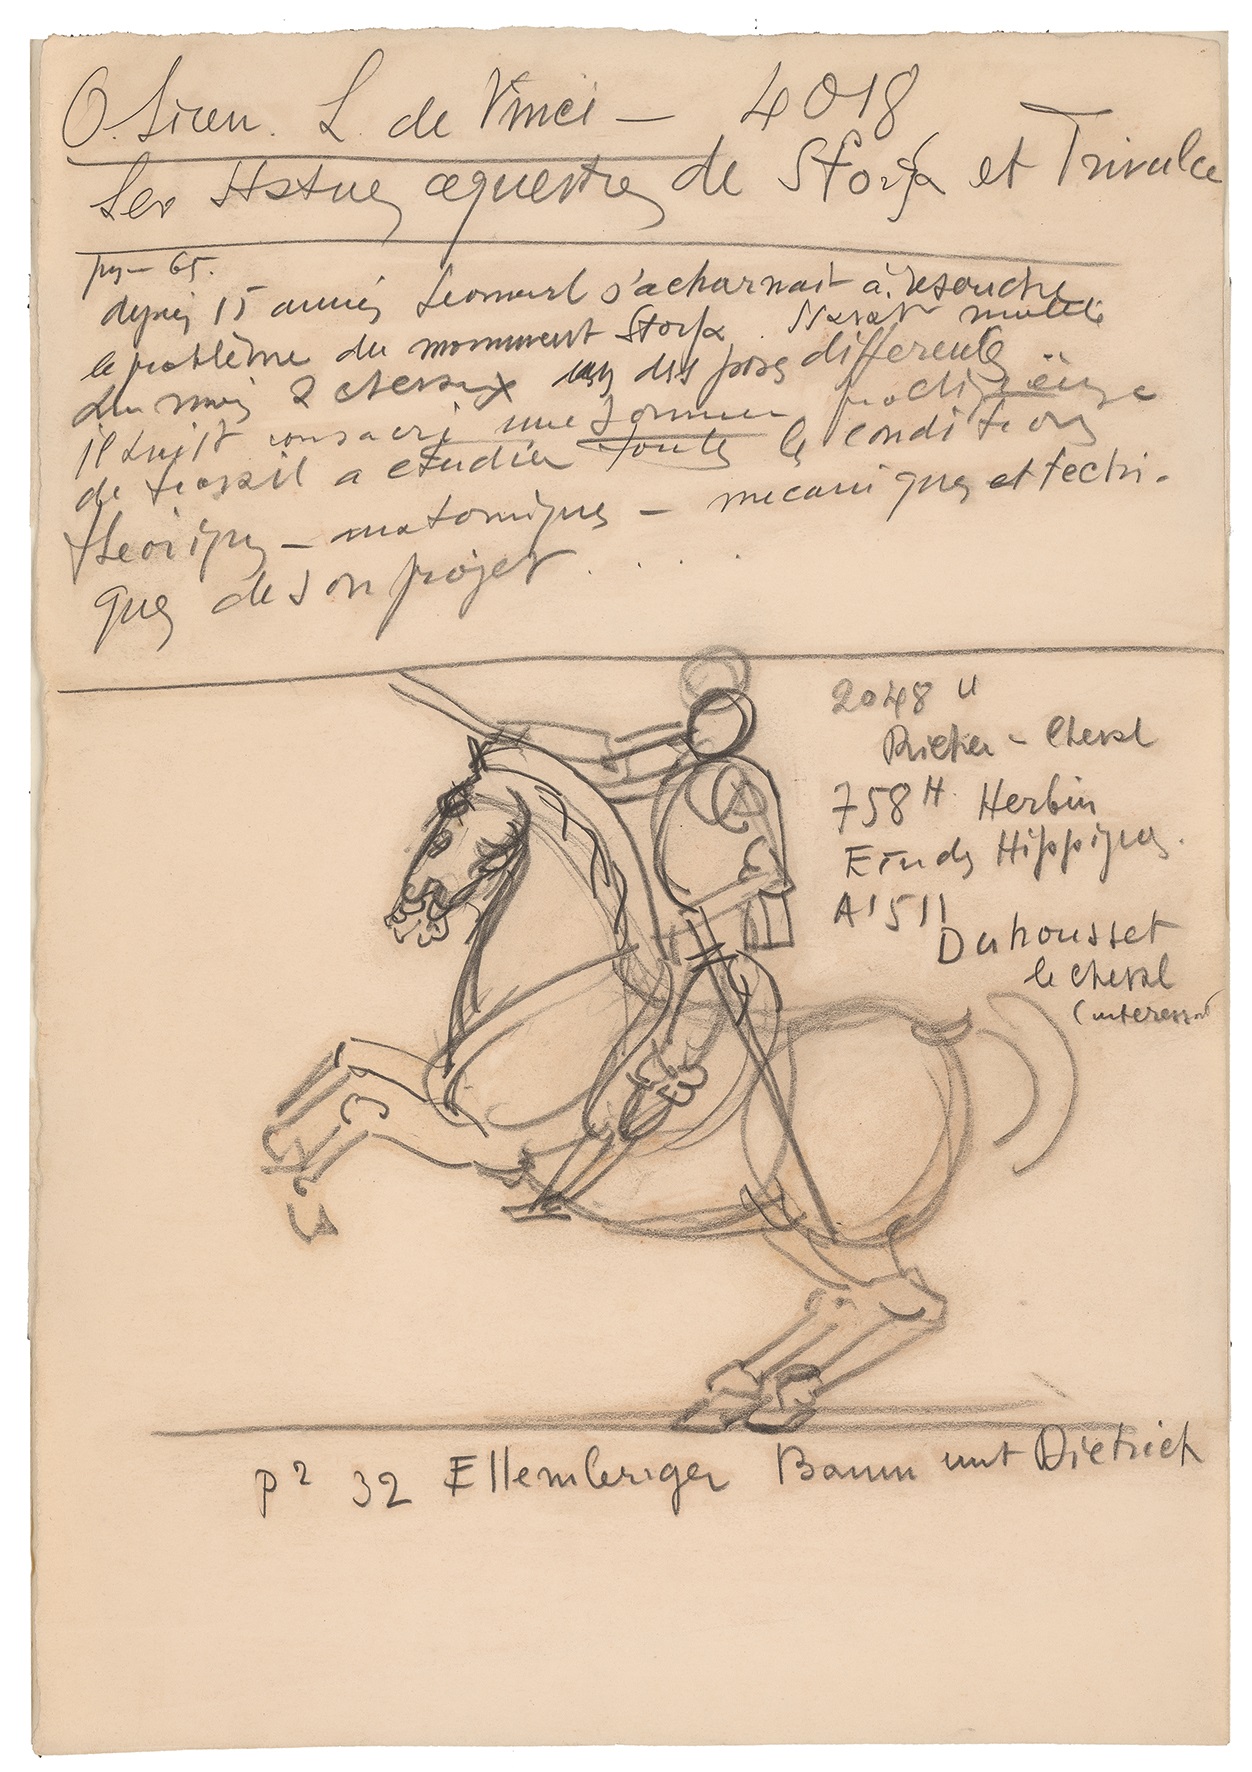 O. Siren. L. de Vinci — 4018
Les Statues equestres de Sforza et Trivulce
pg — 65.
depuis 15 années Leonard s'acharnait à resoudre
le problème du monument Sforza. Il avait modelé
au moins 2 chevaux dans des poses differentes
il avait consacré une somme prodigieuse
de travail a etudier toutes les conditions
theoriques — anatomiques — mecaniques et techni-
ques de son projet . . . .
2048 U
Richer - Cheval
758 H. Herbin
Etudes Hippiques.
A 1511
Duhousset
le cheval
(interessant
p2 32 Ellemberger Baum unt Dietrich